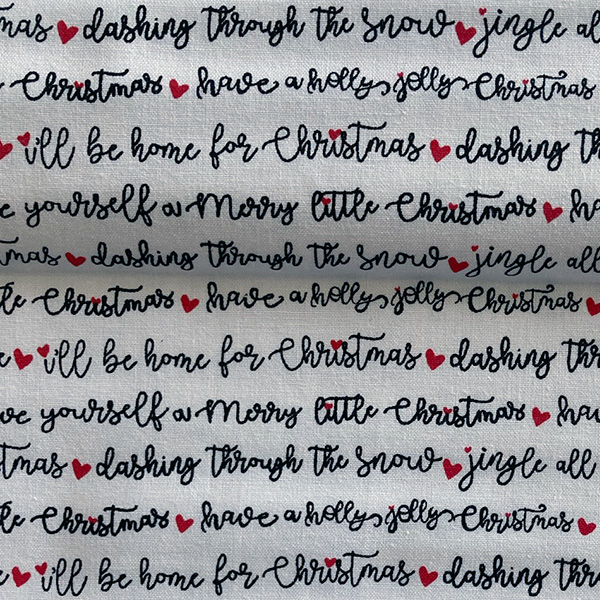 mas dashing through the snow jingle al
Christmas have a holly jolly Christmas
i'll be home for Christmas dashing th
e yourself a Merry little Christmas ha
mas dashing through the snow jingle all
le Christmas have a holly jolly Christmas
e i'll be home for Christmas dashing thr
ve yourself a Merry little Christmas hav
tmas dashing through the snow jingle all
le Christmas have a holly jolly Christmas
e i'll be home for Christmas dashing thr